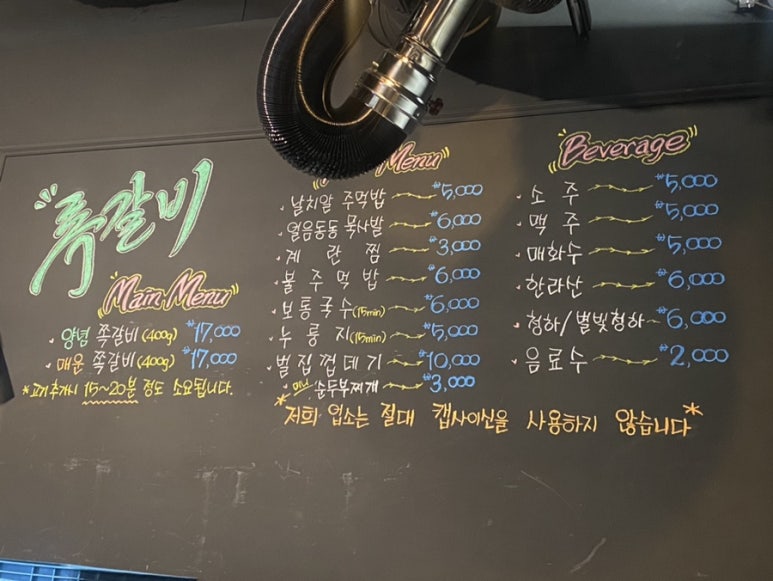 쪽갈비
Main Menu
양념 쪽갈비 (400g) ₩17,000
매운 쪽갈비 (400g) ₩17,000
*고기 추가시 15~20분 정도 소요됩니다.
Menu
날치알 주먹밥 ₩5,000
얼음동동 묵사발 ₩6,000
계란찜 ₩3,000
불주먹밥 ₩6,000
보통국수 (15min) ₩6,000
누룽지 (15min) ₩5,000
벌집껍데기 ₩10,000
미니 순두부찌개 ₩3,000
Beverage
소주 ₩5,000
맥주 ₩5,000
매화수 ₩5,000
한라산 ₩6,000
청하/별빛청하 ₩6,000
음료수 ₩2,000
*저희 업소는 절대 캡사이신을 사용하지 않습니다*